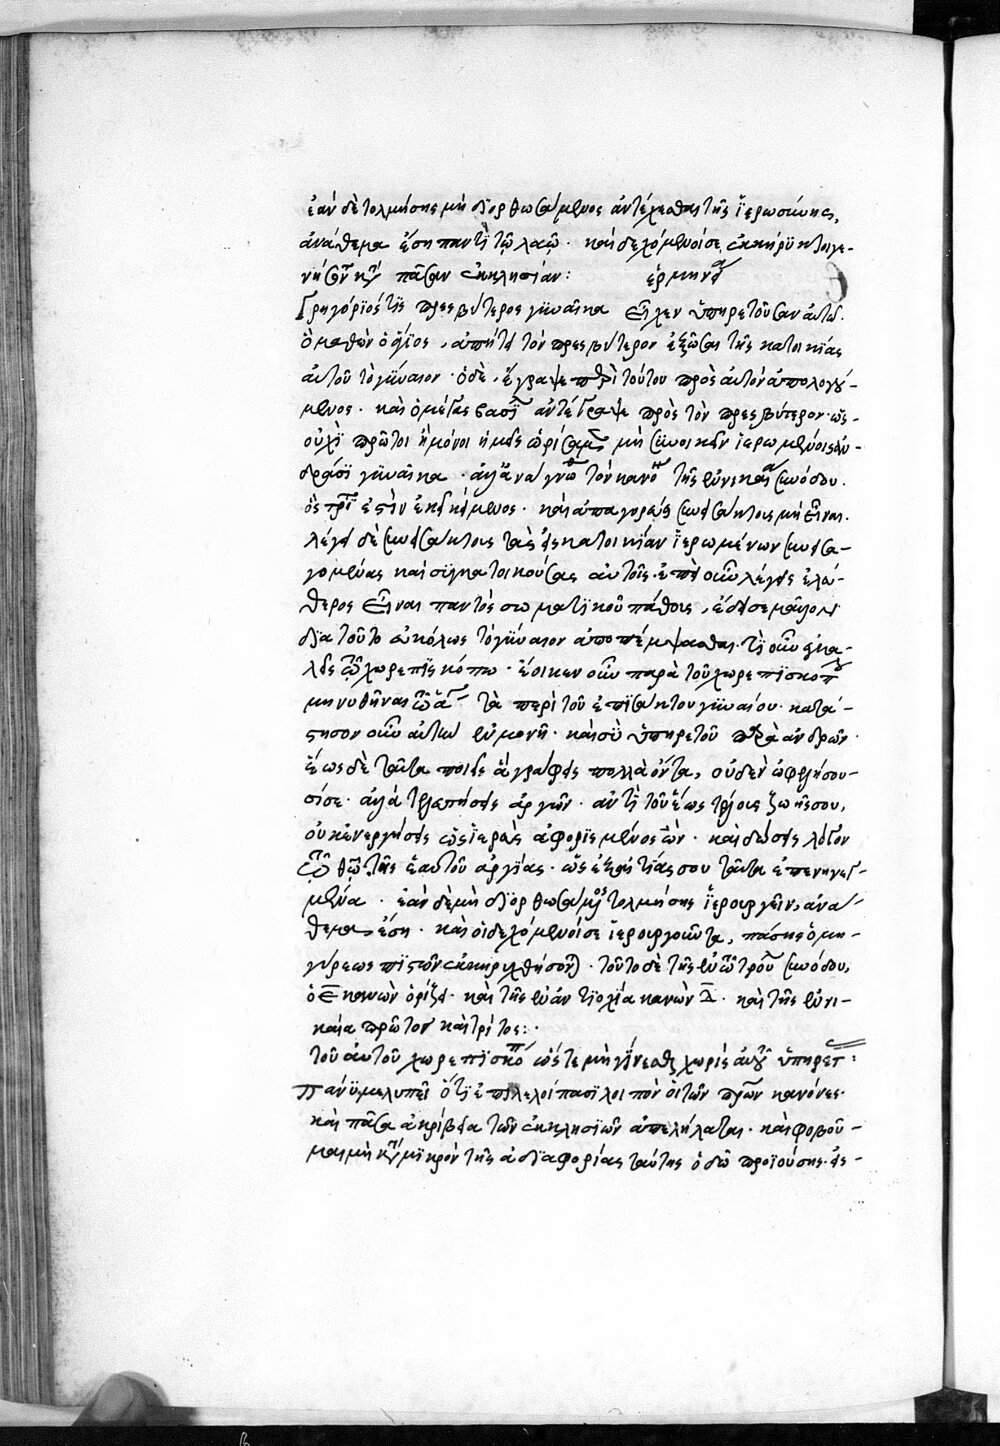 ἐὰν δὲ τολμήσης μὴ διορθωσάμενος ἀντέχεσθαι τῆς ἱερωσύνης,
ἀνάθεμα ἔση παντὶ τῷ λαῷ· καὶ οἱ δεχόμενοί σε, ἐκκήρυκτοι γε-
νήσονται κατὰ πᾶσαν ἐκκλησίαν: ἑρμηνεία
Γρηγόριός τις πρεσβύτερος γυναῖκα εἶχεν ὑπηρετοῦσαν αὐτῷ.
ὁ μαθὼν ὁ ἅγιος, ἀπήτει τὸν πρεσβύτερον ἐξῶσαι τῆς κατοικίας
αὐτοῦ τὸ γύναιον· ὁ δὲ, ἔγραψε περὶ τούτου πρὸς αὐτὸν ἀπολογού-
μενος· καὶ ὁ μέγας βασίλειος ἀντέγραψε πρὸς τὸν πρεσβύτερον· ὡς
οὐχὶ πρῶτοι ἢ μόνοι ἡμεῖς ὡρίσαμεν μὴ συνοικεῖν ἱερωμένοις ἀν-
δράσι γυναῖκα· ἀλλὰ ἀνάγνωθι τὸν κανόνα τῆς ἐν νικαία συνόδου.
ὅς τρίτος ἐστὶν ἐκδεδομένος· καὶ ἀπαγορεύει συνεισάκτους μὴ εἶναι.
λέγει δὲ συνεισάκτους τὰς εἰς κατοικίαν ἱερωμένων συνεισα-
γομένας καὶ συγκατοικούσας αὐτοῖς· ἐπεὶ οὖν λέγεις ἐλεύ-
θερος εἶναι παντὸς σωματικοῦ πάθους, ἔδει σε μᾶλλον
διὰ τοῦτο εὐκόλως τὸ γύναιον ἀποπέμψασθαι· τί οὖν ἐγκα-
λεῖς τῷ χωρεπισκόπω· ἔοικεν οὖν παρὰ τοῦ χωρεπισκόπου
μηνυθῆναι τῷ ἁγίῳ τὰ περὶ τοῦ ἐπεισάκτου γυναίου· κατά-
στησον οὖν αὐτὴν ἐν μονῇ· καὶ σὺ ὑπηρετοῦ παρὰ ἀνδρῶν·
ἕως δὲ ταῦτα ποιεῖς ἃ γράφεις πολλὰ ὄντα, οὐδὲν ὠφελήσου-
σί σε· ἀλλὰ τελευτήσεις ἀργῶν· ἀντὶ τοῦ ἕως τέλους ζωῆς σου,
οὐκ ἐνεργήσεις ὡς ἱερεὺς ἀφορισμένος ὤν· καὶ δώσεις λόγον
τῷ θεῷ τῆς ἑαυτοῦ ἀργίας· ὡς ἐξ αἰτίας σου ταῦτα ἐπενηνεγ-
μένα· ἐὰν δὲ μὴ διορθωσάμενος τολμήσης ἱερουργεῖν, ἀνά-
θεμα ἔση· καὶ οἱ δεχόμενοί σε ἱερουργοῦντα, πάσης ὁμη-
γύρεως πιστῶν ἐκκηρυχθήσονται· τοῦτο δὲ τῆς ἐν τῷ τρούλλῳ συνόδου,
ὁ ε̅ κανὼν ὁρίζει· καὶ τῆς ἐν ἀντιοχία κανὼν
καὶ τῆς ἐν νι-
καία πρῶτον καὶ τρίτος:·
τοῦ αὐτοῦ χωρεπισκόποις ὥστε μὴ γίνεσθαι χωρὶς αὐτοῦ ὑπηρέτας:
Πάνυ με λυπεῖ ὅτι ἐπιλελοίπασι λοιπὸν οἱ τῶν πατέρων κανόνες·
καὶ πᾶσα ἀκρίβεια τῶν ἐκκλησιῶν ἀπελήλαται· καὶ φοβοῦ-
μαι μὴ κατὰ μικρὸν τῆς ἀδιαφορίας ταύτης ὁδῷ προϊούσης· εἰς